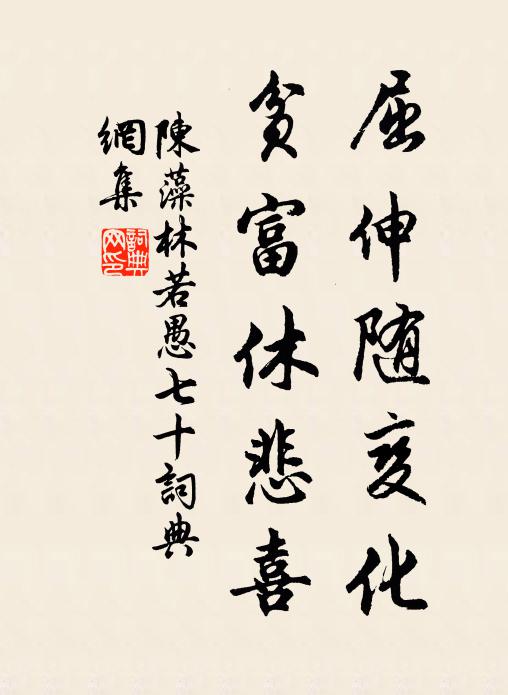 屈伸随变化
貧富休悲喜
陳藻林若愚七十詞典
網集
詞典網印